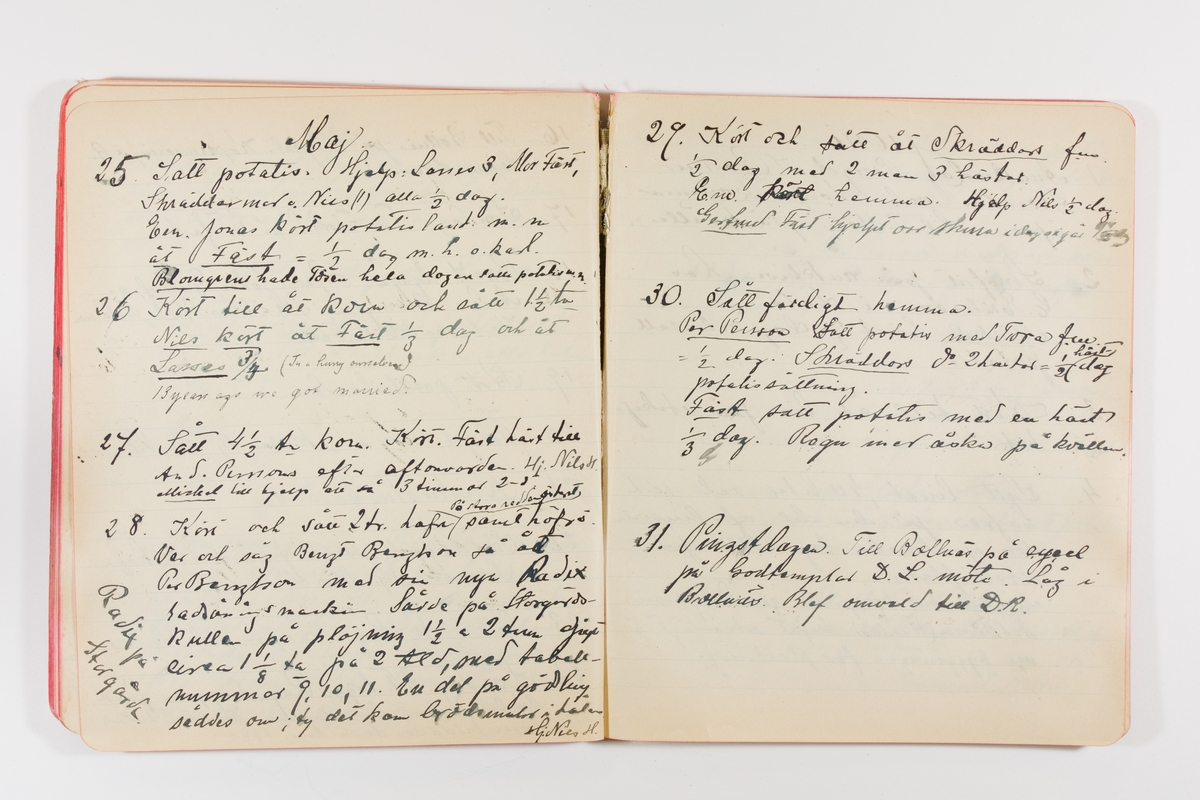 Maj.
25. Satt potatis. Hjelp: Lasses 3, Mor Fäst,
Skräddarmor o. Nils (!) alla ½ dag.
Em. Jonas kört potatisland m. m
åt Fäst = ½ dag m. h. o. karl.
Blomgrens hade Tören hela dagen satte potatis m.m.
26 Kört till åt korn och sått 1½ tn
Nils kört åt Fäst ⅓ dag och åt
Lasses ¾ (In a hurry ourselves)
13 years ago we got married.
27. Sått 4½ tn korn. Kört. Fäst häst till
And. Persons efter aftonvarden. Hj. Nils H.
Mickel till hjelp att så 3 timmar 2-
28. Kört och sått 2 tr. hafre samt höfrö.
På stora
Var och såg Bengt Bengtson så åt
Per Bengtson med sin nya Radix
radsåningsmaskin. Sådde på Storgårds-
kullen på plöjning 1½ a 2 tum djupt
circa 1⅛ tn på 2 tld, med tabell-
nummer 9, 10, 11. En del på gödling
såddes om; ty det kom brödsmulor i hålen
Hj. Nils H.
Radix på
Storgårds.
29. Kört och sått åt Skräddars fm.
½ dag med 2 man 3 hästar.
Em. kört hemma. Hjelp Nils ½ dag
Gertrud Fäst hjelpt oss hemma idag
30. Sått färdigt hemma.
Per Persson Satt potatis med Tora fm.
= ½ dag. Skräddars Do 2 hästar = ½ häst dag
potatissättning.
Fäst satt potatis med en häst
⅓ dag. Regn mer åska på kvällen.
31. Pingstdagen. Till Bollnäs på cyckel
på Godtemplar D. L. möte. Låg i
Bollnäs. Blef omvald till D.R.